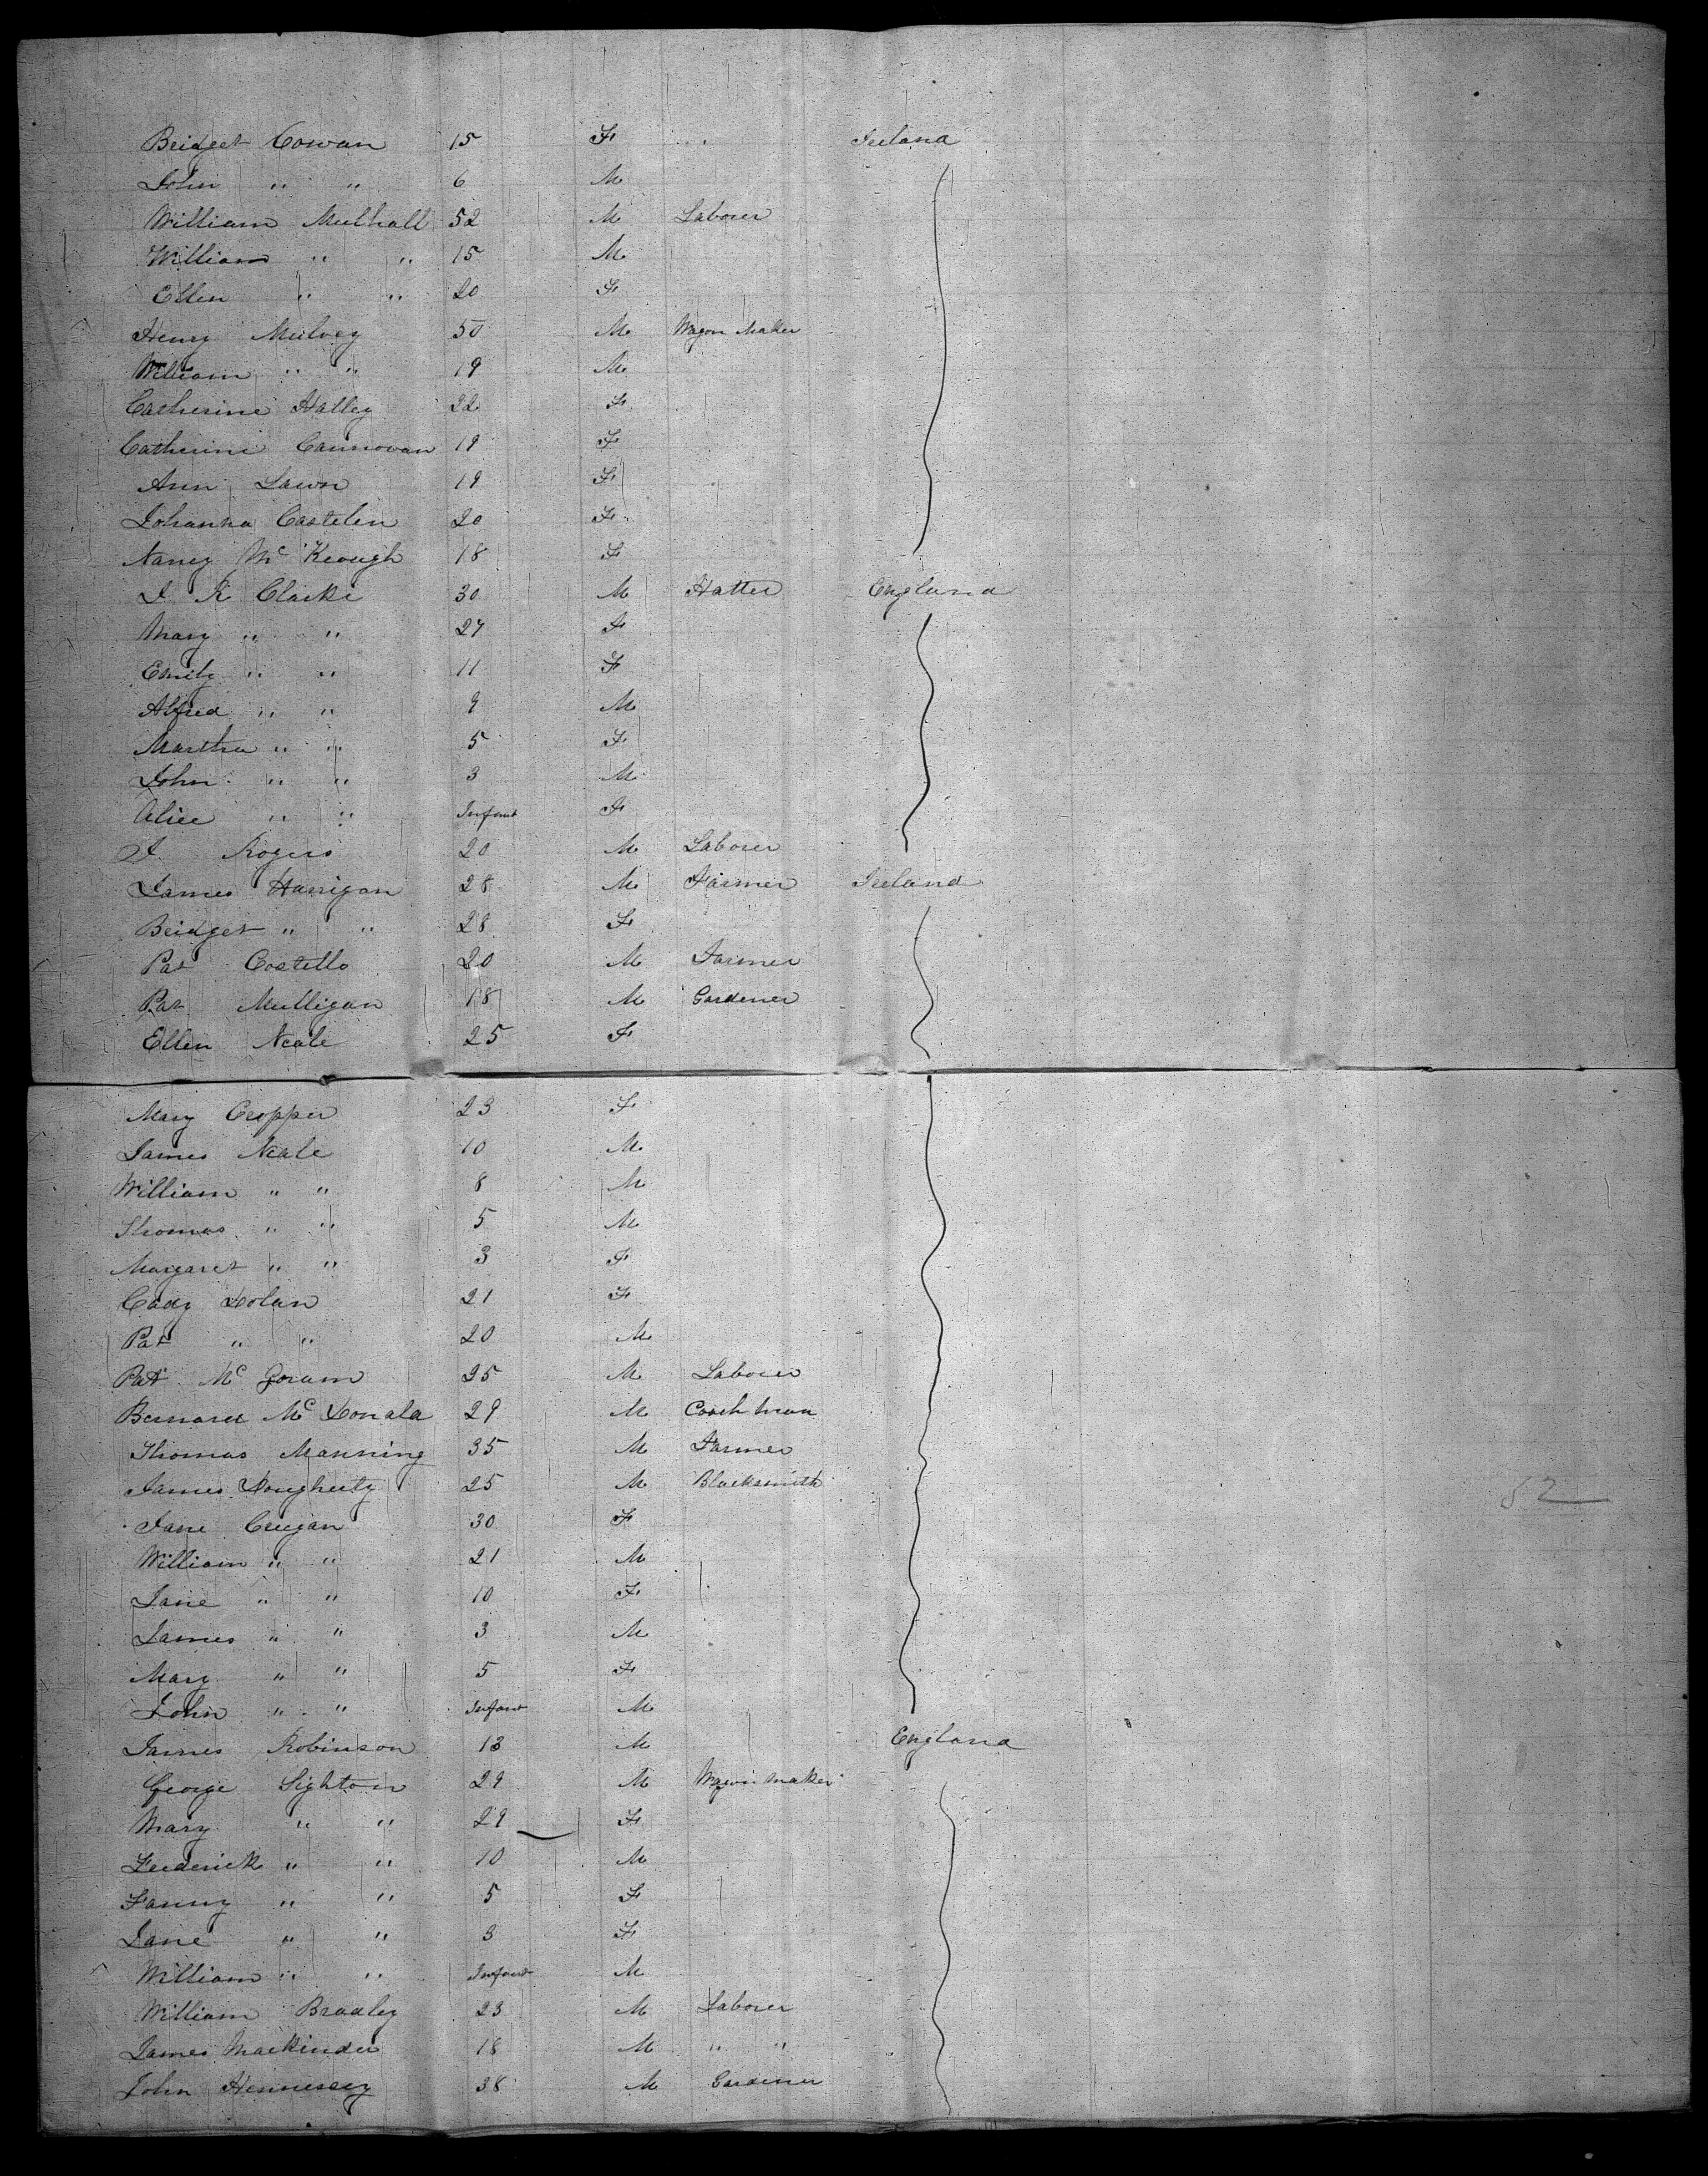 Bridget Cowan 15 F " Ireland
John " " 6 M
William Mulhall 52 M Laborer
William " " 15 M
Ellen " " 20 F
Henry Mulvey 50 M Wagon Maker
William " " 19 M
Catherine Hatley 22 F
Catherine Cannovan 19 F
Ann Lawn 19 F
Johanna Castelen 20 F
Nancy Mc Keough 18 F
J K Clarke 30 M Hatter England
Mary " " 27 F
Emily " " 11 F
Alfred " " 9 M
Martha " " 5 F
John " " 3 M
Alice " " Infant F
J. Rogers 20 M Laborer
James Harrigan 28 M Farmer Ireland
Bridget " " 28 F
Pat Costello 20 M Farmer
Pat Mulligan 18 M Gardener
Ellen Neale 25 F
Mary Cropper 23 F
James Neale 10 M
William " " 8 M
Thomas " " 5 M
Margaret " " 3 F
Cady Dolan 21 F
Pat " " 20 M
Pat Mc Goram 25 M Laborer
Bernard Mc Donald 29 M Coachman
Thomas Manning 35 M Farmer
James Dougherty 25 M Blacksmith
52
Jane Creegan 30 F
William " " 21 M
Jane " " 10 F
James " " 3 M
Mary " " 5 F
John " " Infant M
James Robinson 13 M England
George Lightowr 29 M Wagon maker
Mary " " 29 F
Frederick " " 10 M
Fanny " " 5 F
Jane " " 3 F
William " " Infant M
William Bradley 23 M Laborer
James Mackinder 18 M " "
John Hennessey 38 M Gardener